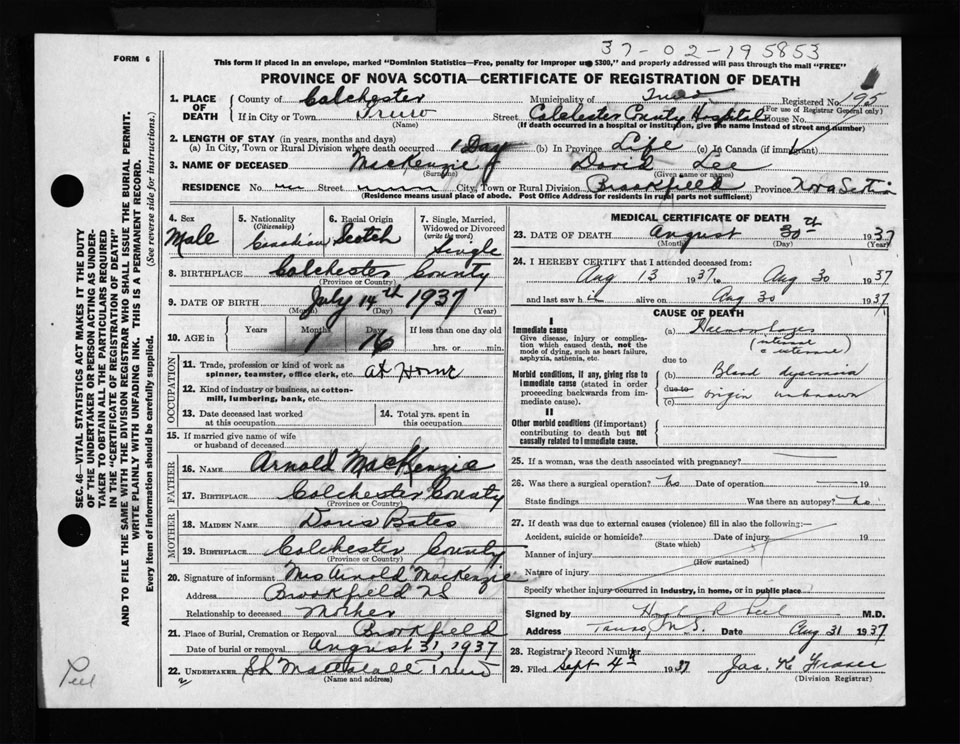 37-02-195853
FORM 6
This form if placed in an envelope, marked "Dominion Statistics—Free, penalty for improper use $300," and properly addressed will pass through the mail "FREE"
PROVINCE OF NOVA SCOTIA—CERTIFICATE OF REGISTRATION OF DEATH
1. PLACE OF DEATH County of Colchester Municipality of Truro Registered No. 195
(For use of Registrar General only)
If in City or Town Truro Street Colchester County Hospital House No.
(Name) (If death occurred in a hospital or institution, give the name instead of street and number)
2. LENGTH OF STAY (in years, months and days)
(a) In City, Town or Rural Division where death occurred 1 Day (b) In Province Life (c) In Canada (if immigrant)
3. NAME OF DECEASED MacKenzie David Lee
(Surname) (Given name or names)
RESIDENCE No. Street City, Town or Rural Division Brookfield Province Nova Scotia
(Residence means usual place of abode. Post Office Address for residents in rural parts not sufficient)
4. Sex Male
5. Nationality (Citizenship) Canadian
6. Racial Origin Scotch
7. Single, Married, Widowed or Divorced (write the word) Single
8. BIRTHPLACE Colchester County
(Province or Country)
9. DATE OF BIRTH July 14th 1937
(Month) (Day) (Year)
10. AGE in Years Months 1 Days 16 If less than one day old
hrs. or min.
OCCUPATION
11. Trade, profession or kind of work as spinner, teamster, office clerk, etc. at Home
12. Kind of industry or business, as cotton-mill, lumbering, bank, etc.
13. Date deceased last worked at this occupation
14. Total yrs. spent in this occupation
15. If married give name of wife or husband of deceased
FATHER
16. NAME Arnold MacKenzie
17. BIRTHPLACE Colchester County
(Province or Country)
MOTHER
18. MAIDEN NAME Doris Bates
19. BIRTHPLACE Colchester County
(Province or Country)
20. Signature of informant Mrs Arnold MacKenzie
Address Brookfield NS
Relationship to deceased Mother
21. Place of Burial, Cremation or Removal Brookfield
Date of burial or removal August 31, 1937
22. UNDERTAKER Truro
(Name and address)
MEDICAL CERTIFICATE OF DEATH
23. DATE OF DEATH August 30th 1937
(Month) (Day) (Year)
24. I HEREBY CERTIFY that I attended deceased from:
Aug 13 1937 to Aug 30 1937
and last saw h alive on Aug 30 1937
CAUSE OF DEATH
I
Immediate cause
Give disease, injury or complication which caused death, not the mode of dying, such as heart failure, asphyxia, asthenia, etc.
(a) Haemorrhages
(internal & external)
due to
Morbid conditions, if any, giving rise to immediate cause (stated in order proceeding backwards from immediate cause).
(b) Blood dyscrasia
due to
(c) origin unknown
II
Other morbid conditions (if important) contributing to death but not causally related to immediate cause.
25. If a woman, was the death associated with pregnancy?
26. Was there a surgical operation? no Date of operation 19
State findings Was there an autopsy? no
27. If death was due to external causes (violence) fill in also the following:—
Accident, suicide or homicide? Date of injury 19
(State which)
Manner of injury
(How sustained)
Nature of injury
Specify whether injury occurred in industry, in home, or in public place
Signed by Hugh R Peel M.D.
Address Truro, N.S. Date Aug 31 1937
28. Registrar's Record Number
29. Filed Sept 4th 1937 Jas. K Fraser
(Division Registrar)
SEC. 46—VITAL STATISTICS ACT MAKES IT THE DUTY
OF THE UNDERTAKER OR PERSON ACTING AS UNDER-
TAKER TO OBTAIN ALL THE PARTICULARS REQUIRED
IN THE "CERTIFICATE OF REGISTRATION OF DEATH"
AND TO FILE THE SAME WITH THE DIVISION REGISTRAR WHO SHALL ISSUE THE BURIAL PERMIT.
WRITE PLAINLY WITH UNFADING INK. THIS IS A PERMANENT RECORD.
Every item of information should be carefully supplied. (See reverse side for instructions.)
Peel